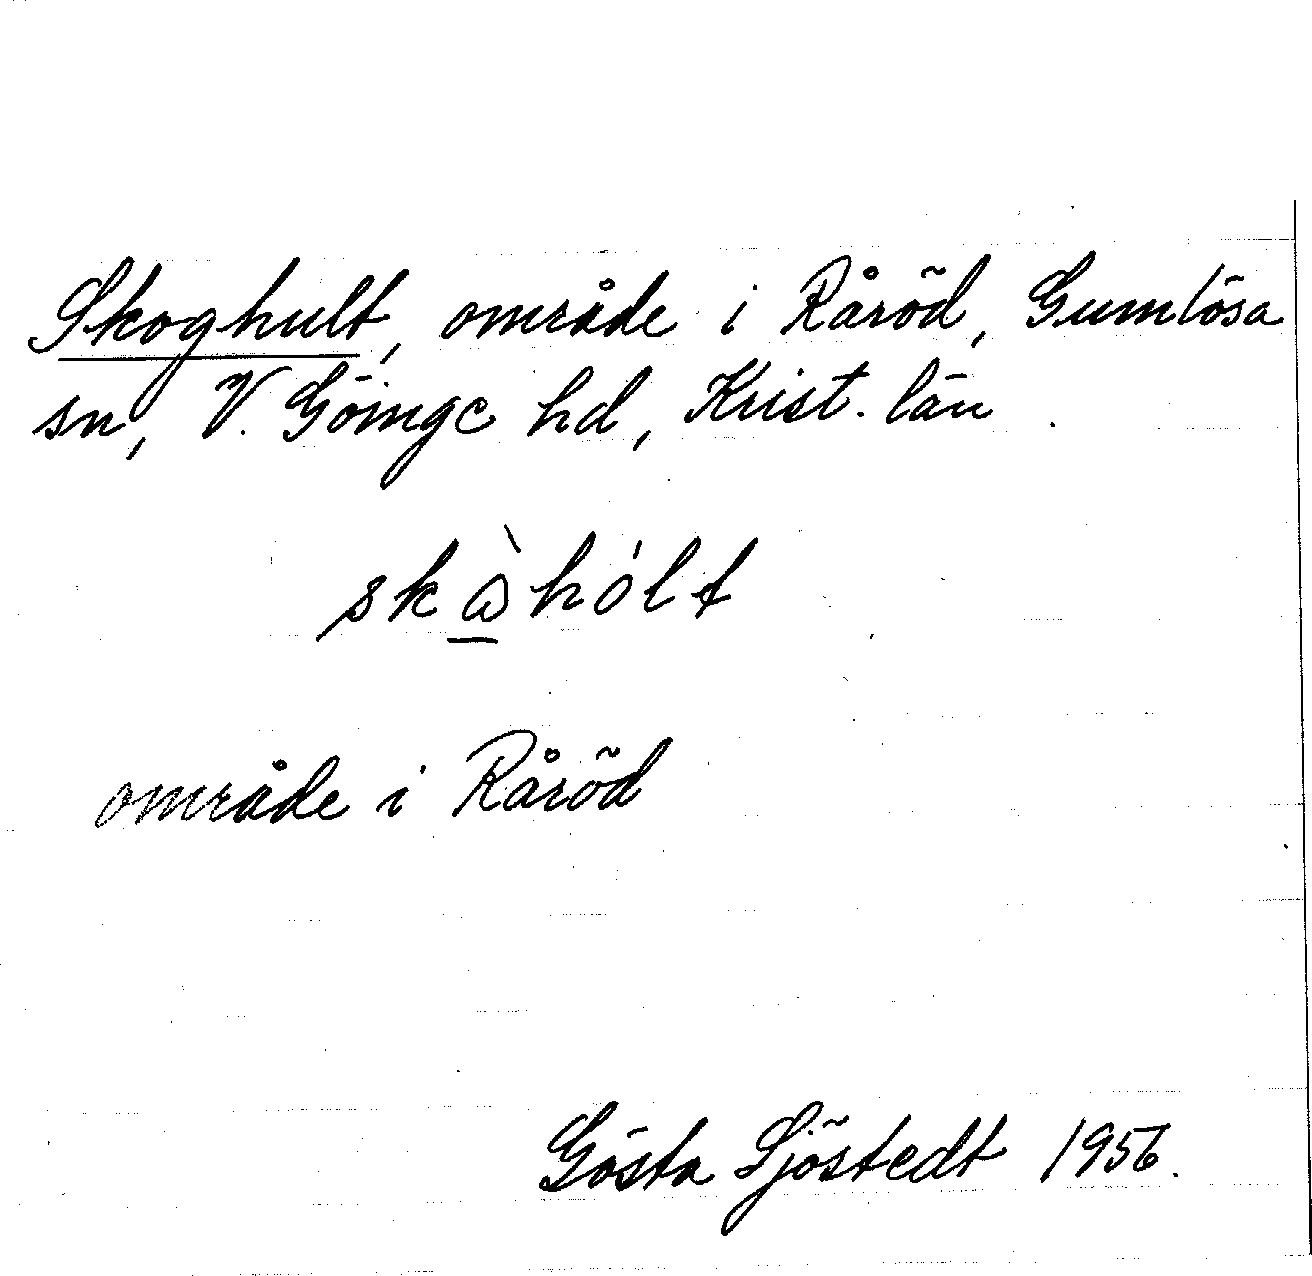 Skoghult, område i Råröd, Gumlösa
sn, V. Göinge hd, Krist. län
skὼhólt
område i Råröd
Gösta Sjöstedt 1956.